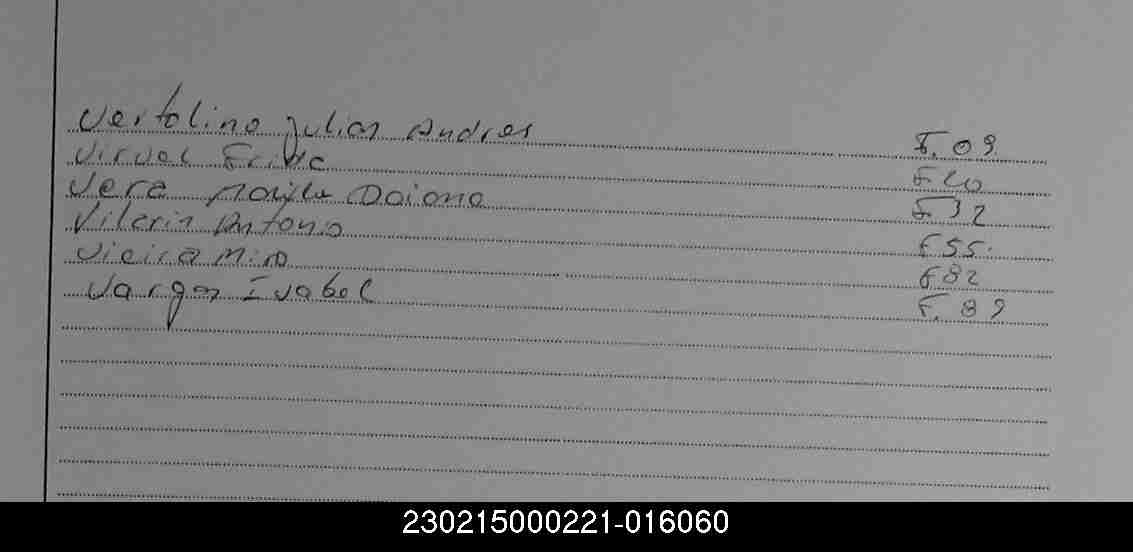 Vertolino Julian Andres F. 09
Viruel F20
Vera Daiana F 32
Vilarin Antonio F 55.
Vieira F 82
Vargas Isabel F. 89
230215000221-016060